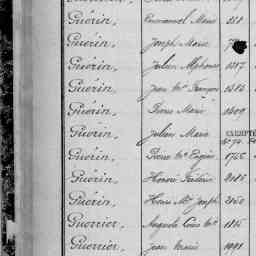 Guérin, Emmanuel Marie 251
Guérin, Joseph Marie
Guérin, Julien Alphonse 1387
Guérin, Jean Mie François 1485
Guérin, Pierre Marie 1409
Guérin, Julien Marie EXEMPTÉ
Guérin, Pierre Mie Eugène 1746
Guérin, Honoré 2085
Guérin, Henri Mie Joseph 2050
Guerrier, Auguste Louis Mie 1815
Guerrier, Jean Marie 1091